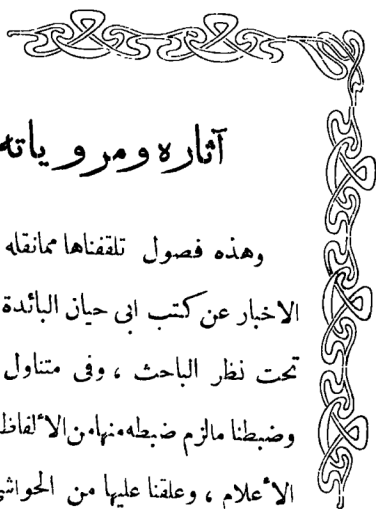 آثاره ومروياته
وهذه فصول تلقفناها مما نقله
الاخبار عن كتب ابى حيان البائدة
تحت نظر الباحث ، وفى متناول
وضبطنا مالزم ضبطه منها من الألفاظ
الأعلام ، وعلقنا عليها من الحواشى